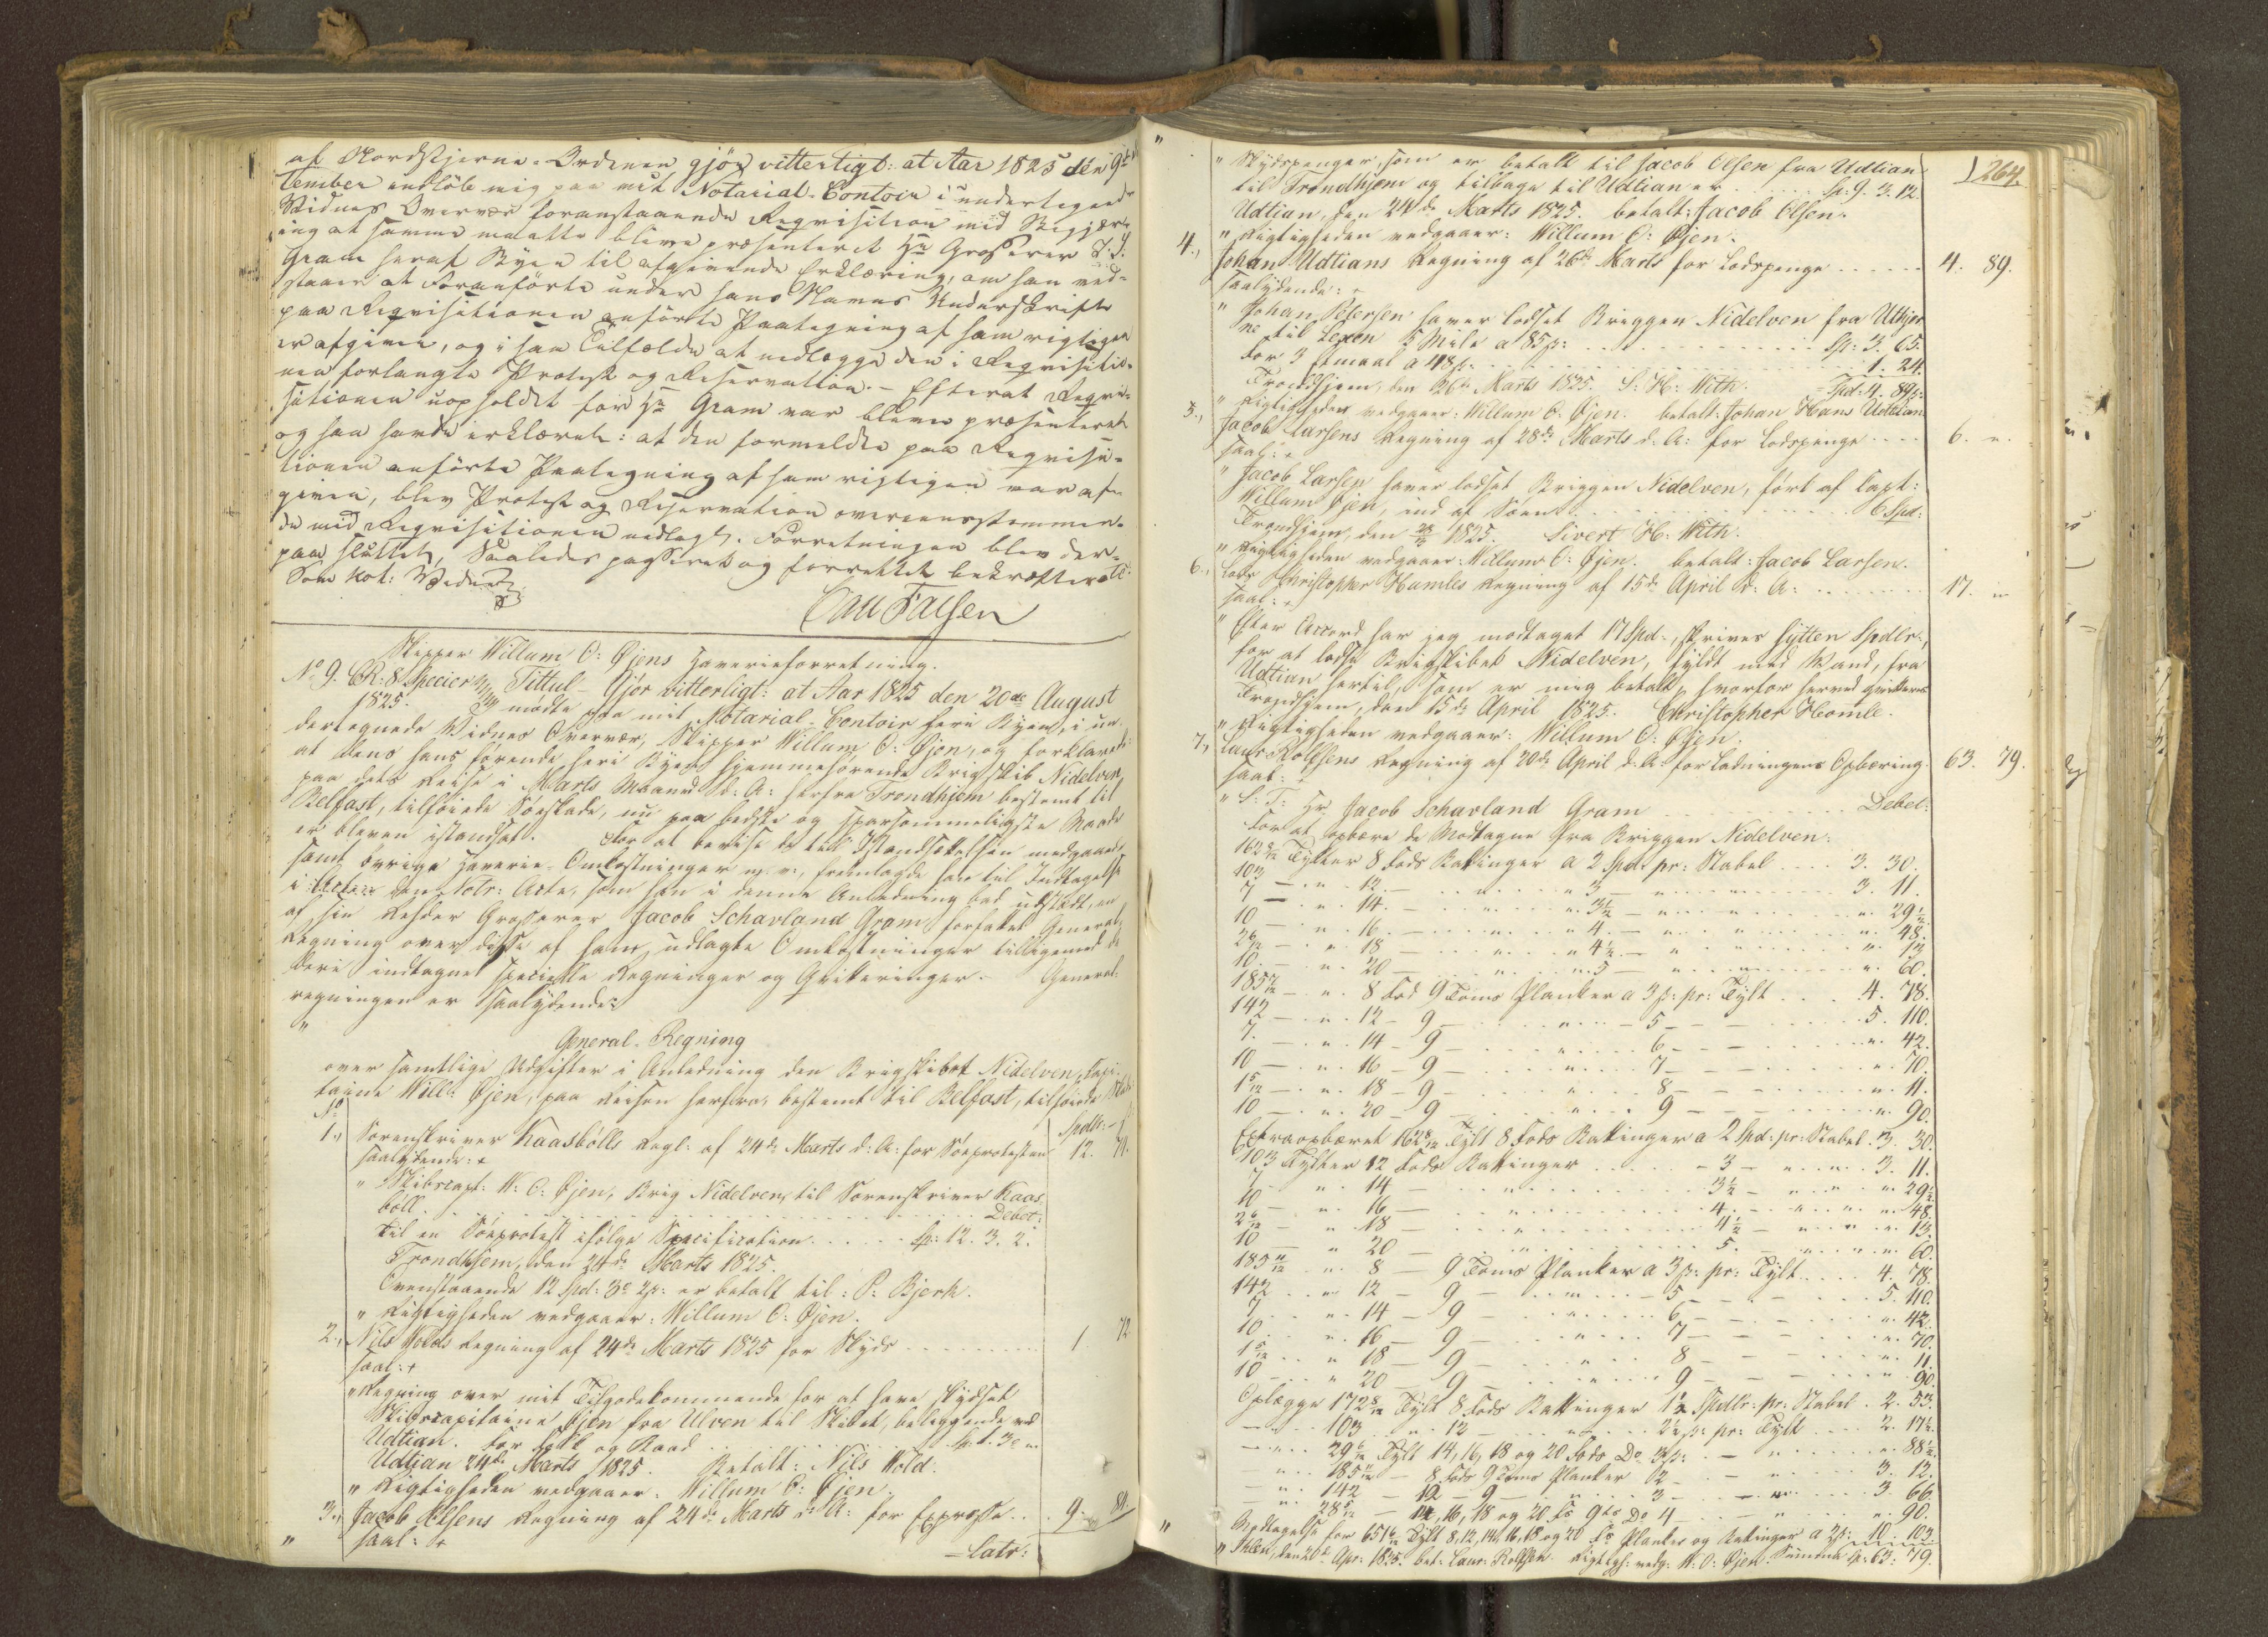 af Nordstjerne-Ordenen gjör vitterligt: at Aar 1825 den 9de
tember indløb mig paa mit Notarial-Contoir i undertegnede
Vidners Overvær foranstaaende Reqvisition med Begjær-
ing at samme maatte blive præsenteret Hr Grosserer J. S.
Gram her af Byen til afgivende Erklæring, om han ved-
staaer at foranførte under hans Navns Underskrift
paa Reqvisitionen anførte Paategning af ham rigtigen
er afgiven, og i saa Tilfælde at nedlægge den i Reqvisitio-
nen forlangte Protest og Reservation. – Efterat Reqvi-
sitionen uopholdet for Hr Gram var bleven præsenteret
og han havde erklæret: at den formeldte paa Reqvisi-
tionen anførte Paategning af ham rigtigen var af-
given, blev Protest og Reservation overeensstemmen-
de med Reqvisitionen nedlagt. Forretningen blev der-
paa sluttet, Saaledes passeret og forrettet bekræfter
Som Not: Vidner
Carl Falsen
Skipper Willum O: Øjens Haverieforretning.
No 9. CR: 8 Specier Tittul – Gjør vitterligt: at Aar 1825 den 20de August
1825. mødte paa mit Notarial-Contoir heri Byen, i un-
dertegnede Vidners Overvær, Skipper Willum O: Øjen, og forklarede:
at dens hans førende heri Byen hjemmehørende Brigskib Nidelven
paa dets Reise i Marts Maaned d: A: herfra Trondhjem bestemt til
Belfast, tilføiede Søeskade, nu paa bedste og sparsommeligste Maade
er bleven istandsat. For at bevise de til Istandsættelsen medgaaede
samt øvrige Haverie-Omkostninger m. v., fremlagde han til Indtagelse
i den Notr: Acte, som han i denne Anledning bad udstædt, en
af sin Rehder Grosserer Jacob Schavland Gram forfattet General
Regning over disse af ham udlagte Omkostninger tilligemed de
deri indtagne specielle Regninger og Qvitteringer. General-
regningen er saalydende:
"
General-Regning
over samtlige Udgifter i Anledning den Brigskibet Nidelven, Capi-
taine Will: Øjen, paa Reisen herfra, bestemt til Belfast, tilføiede Skade
No Spdlr: – ß
1., Sorenskriver Kaasbölls Regl: af 24de Marts d: A: for Søeprotesten 12. 74.
saalydende: +
" Skibscapt: W: O: Øjen, Brig Nidelven til Sorenskriver Kaas
böll . . . Debet:
til en Søeprotest ifølge Specification . . . . . Sp: 12. 3. 2.
Trondhjem, den 24de Marts 1825.
Ovenstaaende 12 Spd: 3o 2ß: er betalt til: P: Bjerk.
" Rigtigheden vedgaaer: Willum O: Øjen.
2., Nils Volds Regning af 24de Marts 1825 for Skyds . . . . . . 1 72.
saal: +
" Regning over mit Tilgodekommende for at have skydset
Skibscapitaine Øjen fra Ulven til Skibet, beliggende ved
Udtian. For Folk og Baad . . . Sp. 1. 3o "
Udtian 24de Marts 1825. Betalt: Nils Vold.
" Rigtigheden vedgaaer: Willum O: Øjen.
3., Jacob Olsens Regning af 24de Marts d: A: for Expresse . . . 9. 84.
" saal: +
– Latr:
264.
" Skydspenger, som er betalt til Jacob Olsen fra Udtian
til Trondhjem og tilbage til Udtian er . . . . . . Sp. 9. 3. 12.
Udtian, den 24de Marts 1825. betalt: Jacob Olsen.
" Rigtigheden vedgaaer: Willum O: Øjen.
4., Johan Udtians Regning af 26de Marts for Lodspenge . . . . . . 4. 89.
saalydende: +
" Johan Petersen haver lodset Briggen Nidelven fra Uthjor
ne til Lexen 5 Mile a 85ß: . . . . . . Sp: 3. 65.
for 3 Etmaal a 48ß: . . . . . . 1. 24.
Trondhjem, den 26de Marts 1825. S: H: With. Spd: 4. 89ß:
" Rigtigheden vedgaaer: Willum O: Øjen. betalt: Johan Hans Udtian
5., Jacob Larsens Regning af 28de Marts d: A: for Lodspenge . . . . 6. "
saal: +
" Jacob Larsen haver lodset Briggen Nidelven, ført af Capt:
Willum Øjen, ind af Søen . . . . . . 6 Spd:
Trondhjem, den 28/3 1825. Sivert H: With.
" Rigtigheden vedgaaer: Willum O: Øjen. betalt: Jacob Larsen.
6., Lods Christopher Humles Regning af 15de April d: A: . . . . . . 17. "
saal: +
" Efter Accord har jeg modtaget 17 Spd:, skriver sytten Spdlr:,
for at lodse Brigskibet Nidelven, fyldt med Vand, fra
Udtian hertil, som er mig betalt, hvorfor herved qvitteres
Trondhjem, den 15de April 1825. Christopher Homle.
" Rigtigheden vedgaaer: Willum O: Øjen.
7., Laur: Rolfsens Regning af 20de April d: A: for Ladningens Opbæring. 63. 79.
saal: +
" S: T: Hr Jacob Schavland Gram . . . . . . Debet:
For at opbære de Modtagne fra Briggen Nidelven:
162 8/12 Tylter 8 Fods Battinger a 2 Spd: pr: Stabel . . . . 3. 30.
103 – " 12 – . . . " 3 – " . . . 3. 11.
7 – " 14 – . . . " 3½ – " . . . " 29½.
10 – " 16 – . . . " 4 – " . . . " 48.
2 6/12 – " 18 – . . . " 4½ – " . . . " 13.
10 – " 20 – . . . " 5 – " . . . " 60.
185 11/12 – " 8 Fod 9 Toms Planker a 3ß: pr: Tylt . . . . 4. 78.
142 – " 12 – 9 – . . . " – 5 – – – . . . 5. 110.
7. – " 14 – 9 – . . . " 6 – – – . . . " 42.
10 – " 16 – 9 – . . . " 7 – – – . . . " 70.
1 5/12 – " 18 – 9 – . . . " 8 – – – . . . " 11.
10 – " 20 – 9 – . . . " 9 – – – . . . " 90.
Extraopbæret 162 8/12 Tylt 8 Fods Battinger a 2 Spd: pr: Stabel . 3. 30.
103 Tylter 12 Fods Battinger . . . . . – 3 – " . . . 3. 11.
7 – " 14 – . . . 3½ – " . . . " 29½.
10 – " 16 – . . . 4 – " . . . " 48.
2 6/12 – " 18 – . . . 4½ – " . . . " 13.
10 – " 20 – . . . 5. – " . . . " 60.
185 11/12 – " 8 – 9 Toms Planker a 3ß: pr: Tylt . . . . 4. 78.
142 . . " 12 – 9 – . . . – 5 – – – . . . 5. 110.
7 . . " 14 – 9 – . . . 6 – – – . . . " 42.
10 . . " 16 – 9 – . . . 7 – – – . . . " 70.
1 5/12 . . " 18 – 9 – . . . 8 – – – . . . " 11.
10 . . " 20 – 9 – . . . 9 – – – . . . " 90.
Oplægge 172 8/12 Tylt 8 Fods Battinger 1½ Spdlr: pr: Stabel . 2. 53.
– " 103 . " 12 – . . . 2½ß: pr: Tylt . . . . 2. 17½.
– " 29 6/12 Tylt 14, 16, 18 og 20 Fods Do 3ß: . – " . . . " 88½.
– " 185 11/12 – 8 Fods 9 Toms Planker 2 – . . . 3. 12.
– " 142 – 12 – 9 – . . . 3 – . . . 3. 66.
– " 28 5/12 – 14, 16, 18 og 20 Fs 9ts Do 4 – . . . " 90.
" Modtagelse for 651 6/12 Tylt 8, 12, 14, 16, 18 og 20 Fs Planker og Battinger a 2ß: 10. 103.
" Ihlen, den 20de Apr: 1825. bet: Laur: Rolfsen. Rigtigh: vedg: W: O: Øjen. Summa Sp: 63. 79.